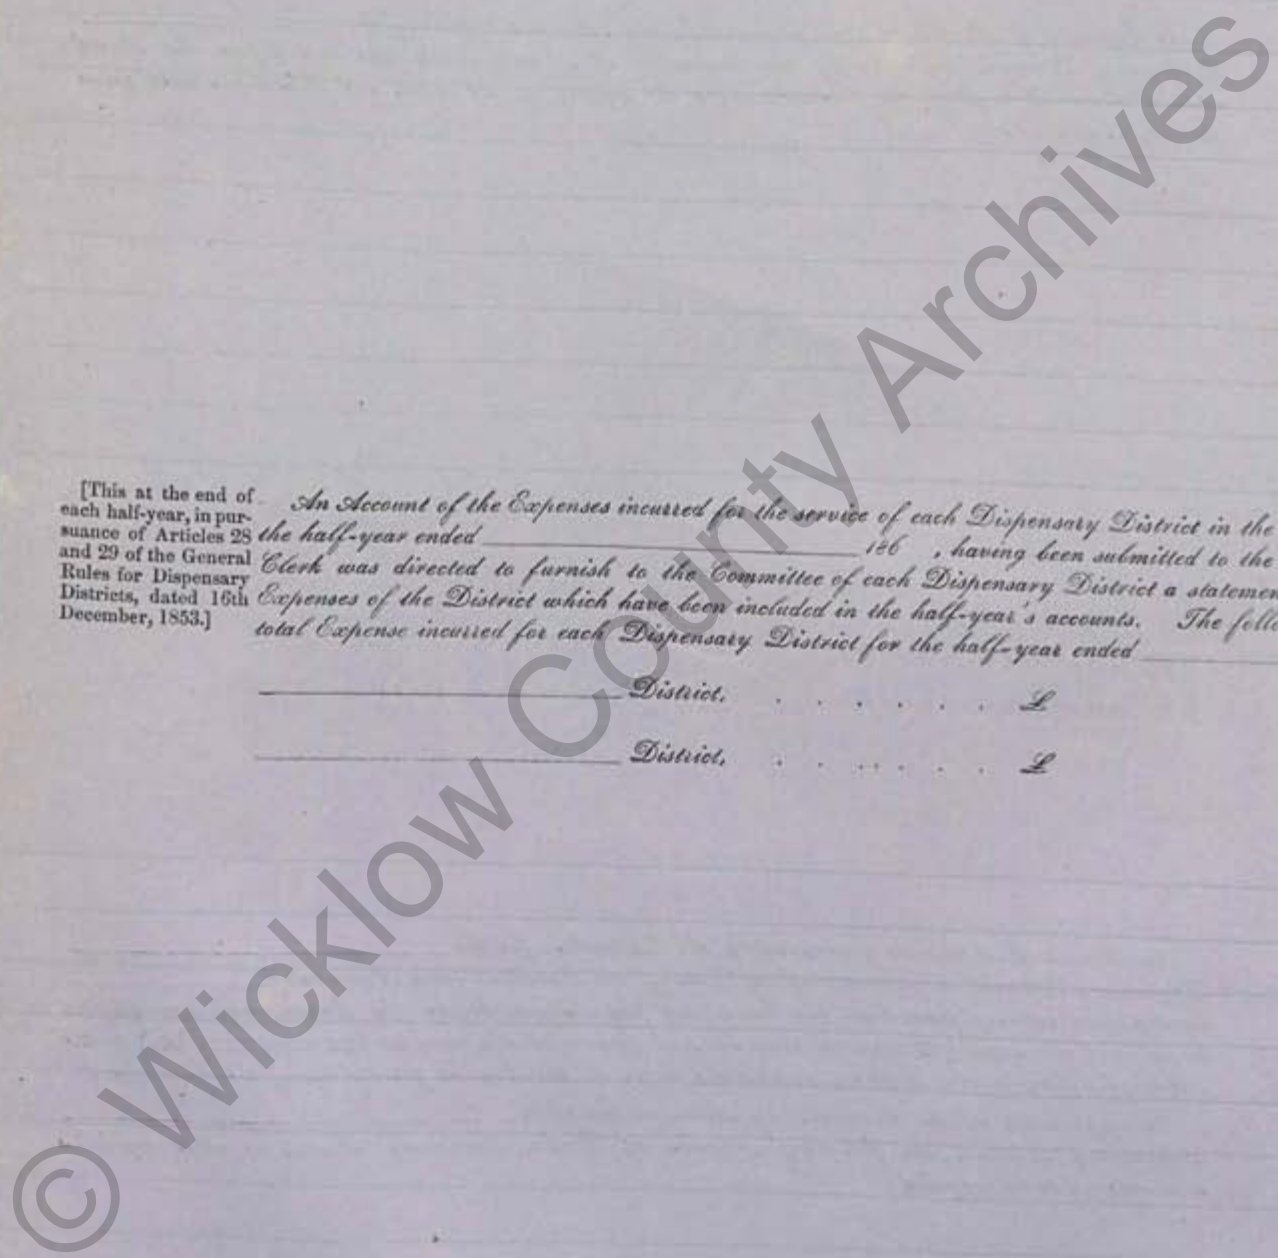 [This at the end of
each half-year, in pur-
suance of Articles 28
and 29 of the General
Rules for Dispensary
Districts, dated 16th
December, 1853.]
An Account of the Expenses incurred for the service of each Dispensary District in the
the half-year ended 186 , having been submitted to the
Clerk was directed to furnish to the Committee of each Dispensary District a statemen
Expenses of the District which have been included in the half-year's accounts. The follo
total Expense incurred for each Dispensary District for the half-year ended
District, . . . . . . £
District, . . . . . . £
© Wicklow County Archives